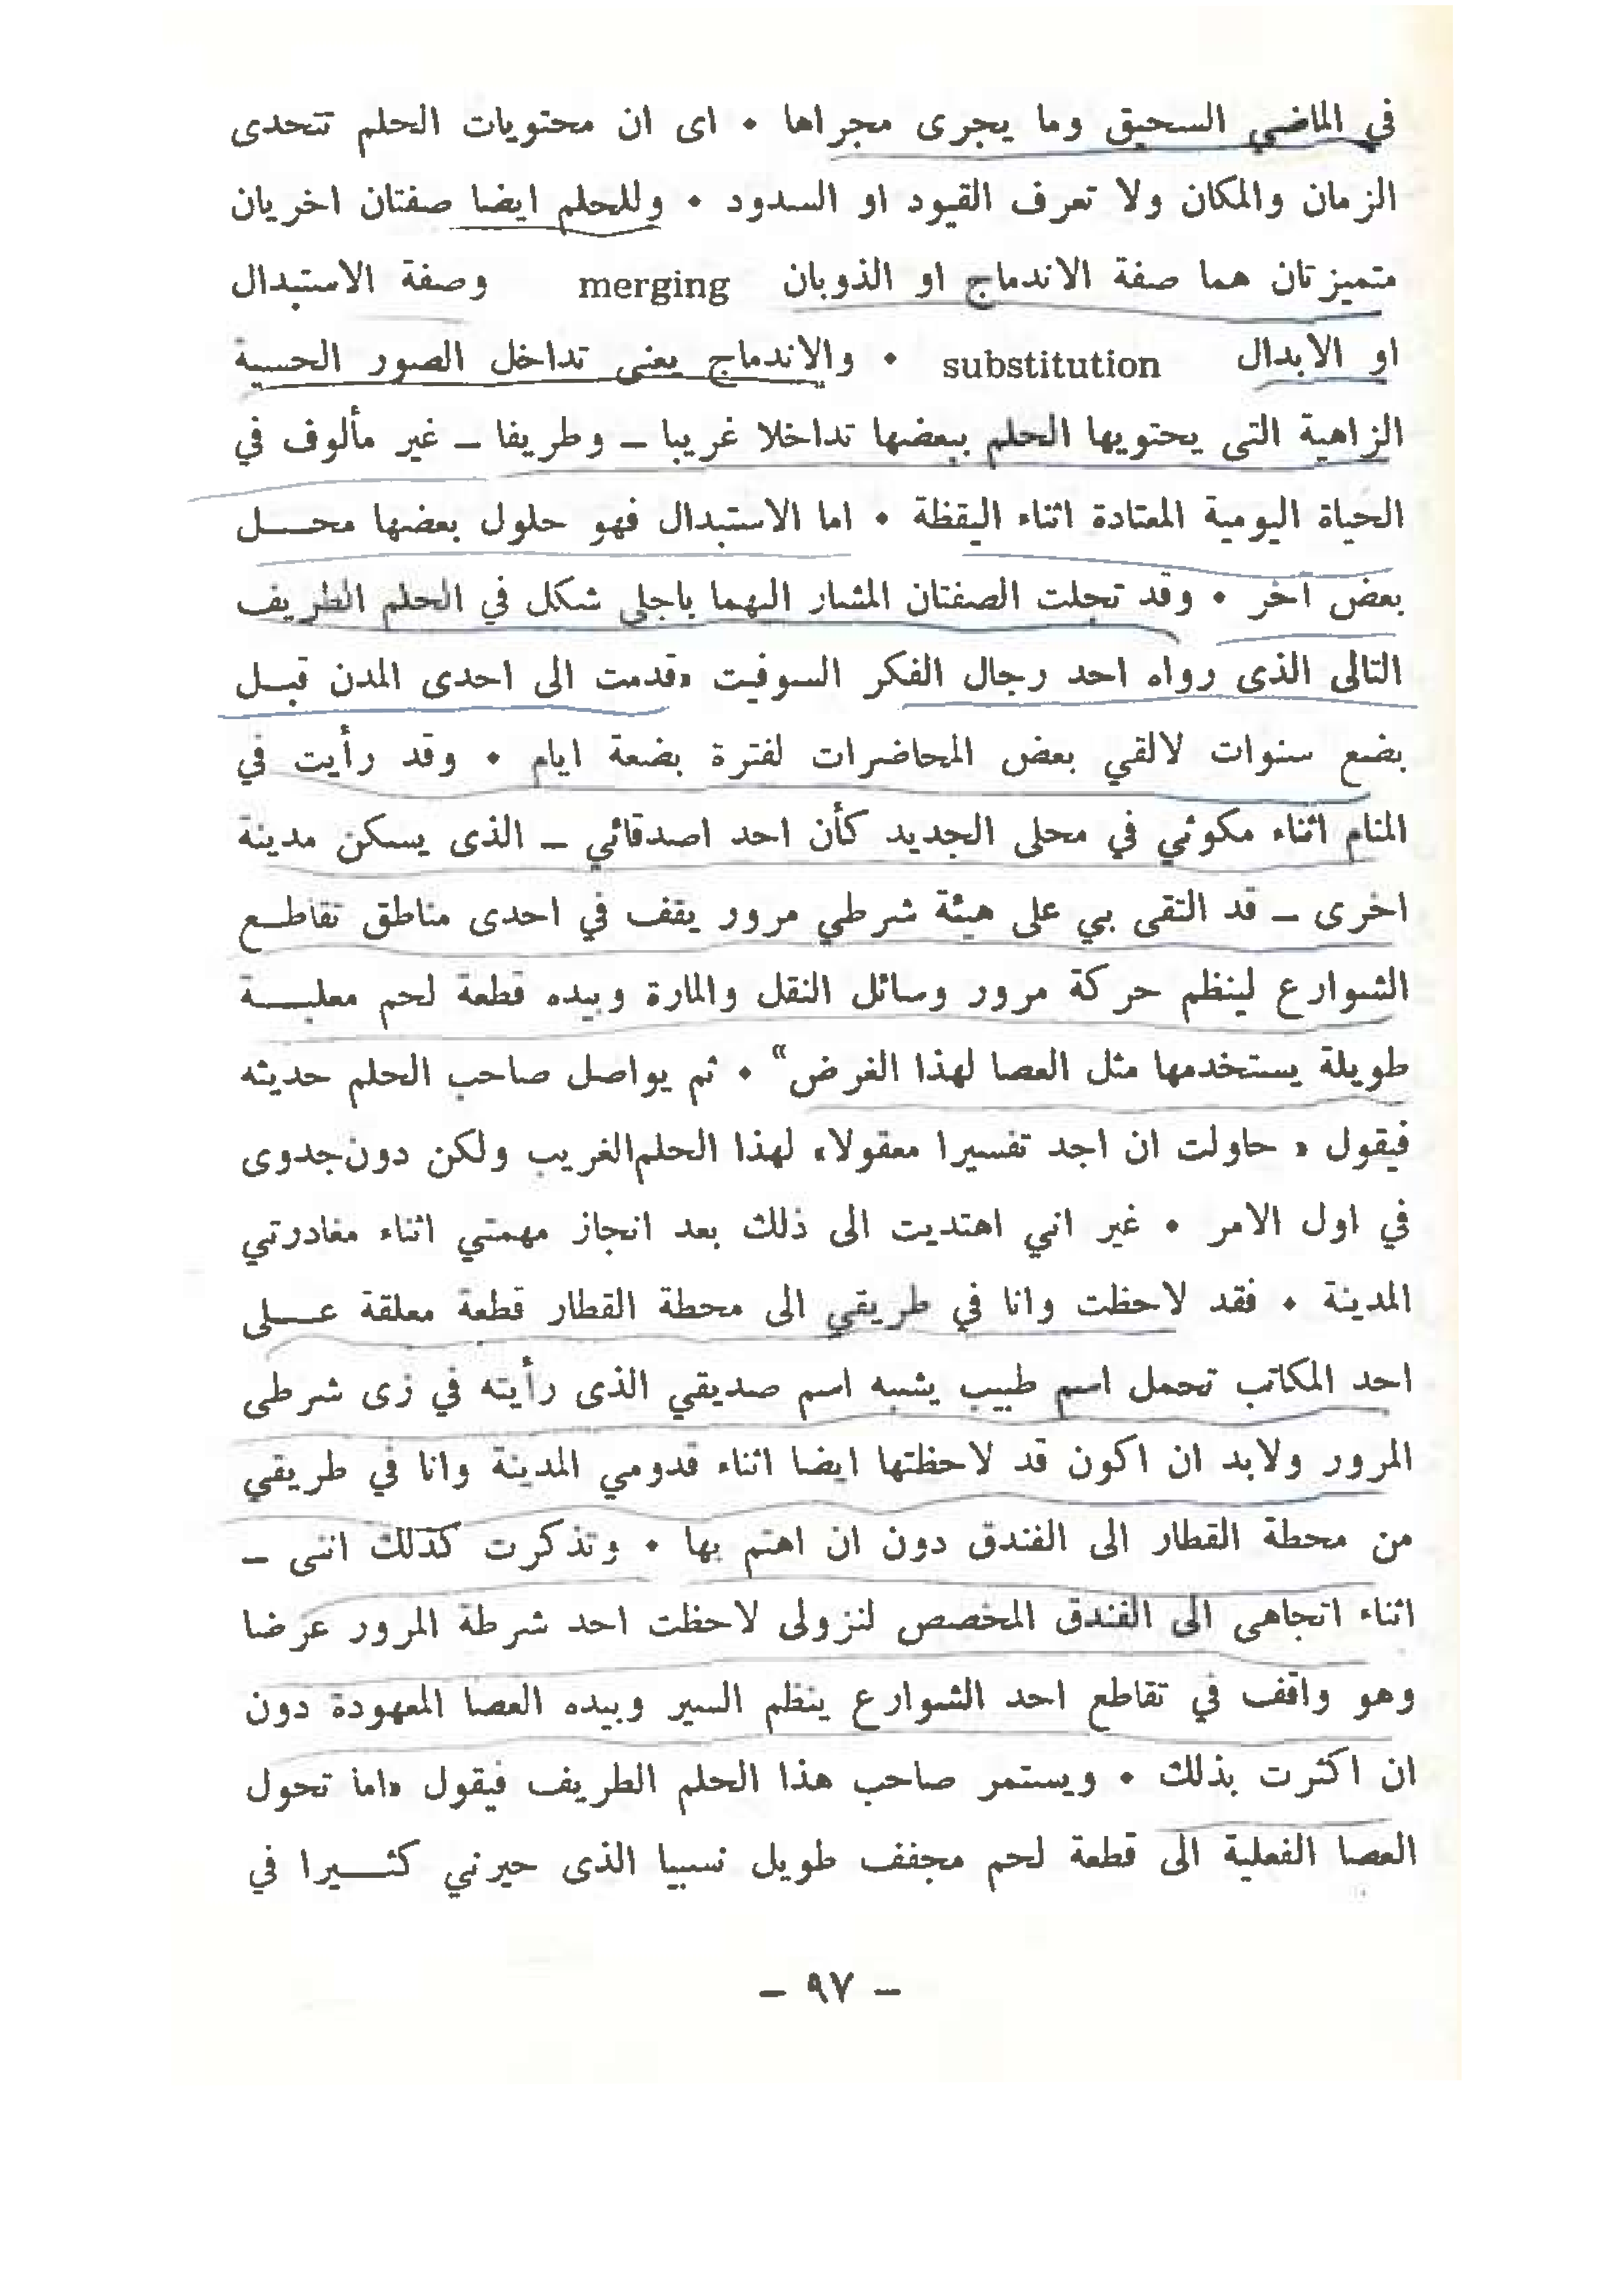 في الماضي السحيق وما يجرى مجراها • اى ان محتويات الحلم تتحدى
الزمان والمكان ولا تعرف القيود او السدود • وللحلم ايضا صفتان اخريان
متميزتان هما صفة الاندماج او الذوبان merging وصفة الاستبدال
او الابدال substitution • والاندماج يعنى تداخل الصور الحسية
الزاهية التى يحتويها الحلم ببعضها تداخلا غريبا – وطريفا – غير مألوف في
الحياة اليومية المعتادة اثناء اليقظة • اما الاستبدال فهو حلول بعضها محـــل
بعض اخر • وقد تجلت الصفتان المشار اليهما باجلى شكل في الحلم الطريف
التالى الذى رواه احد رجال الفكر السوفيت «قدمت الى احدى المدن قبـل
بضع سنوات لالقي بعض المحاضرات لفترة بضعة ايام • وقد رأيت في
المنام اثناء مكوثي في محلى الجديد كأن احد اصدقائي – الذى يسكن مدينة
اخرى – قد التقى بي على هيئة شرطي مرور يقف في احدى مناطق تقاطـع
الشوارع لينظم حركة مرور وسائل النقل والمارة وبيده قطعة لحم معلبـــة
طويلة يستخدمها مثل العصا لهذا الغرض» • ثم يواصل صاحب الحلم حديثه
فيقول « حاولت ان اجد تفسيرا معقولا» لهذا الحلم الغريب ولكن دون جدوى
في اول الامر • غير اني اهتديت الى ذلك بعد انجاز مهمتي اثناء مغادرتي
المدينة • فقد لاحظت وانا في طريقي الى محطة القطار قطعة معلقة عـــلى
احد المكاتب تحمل اسم طبيب يشبه اسم صديقي الذى رأيته في زى شرطى
المرور ولابد ان اكون قد لاحظتها ايضا اثناء قدومي المدينة وانا في طريقي
من محطة القطار الى الفندق دون ان اهتم بها • وتذكرت كذلك اننى –
اثناء اتجاهى الى الفندق المخصص لنزولى لاحظت احد شرطة المرور عرضا
وهو واقف في تقاطع احد الشوارع ينظم السير وبيده العصا المعهودة دون
ان اكثرت بذلك • ويستمر صاحب هذا الحلم الطريف فيقول «اما تحول
العصا الفعلية الى قطعة لحم مجفف طويل نسبيا الذى حيرني كثـــيرا في
– ٩٧ –